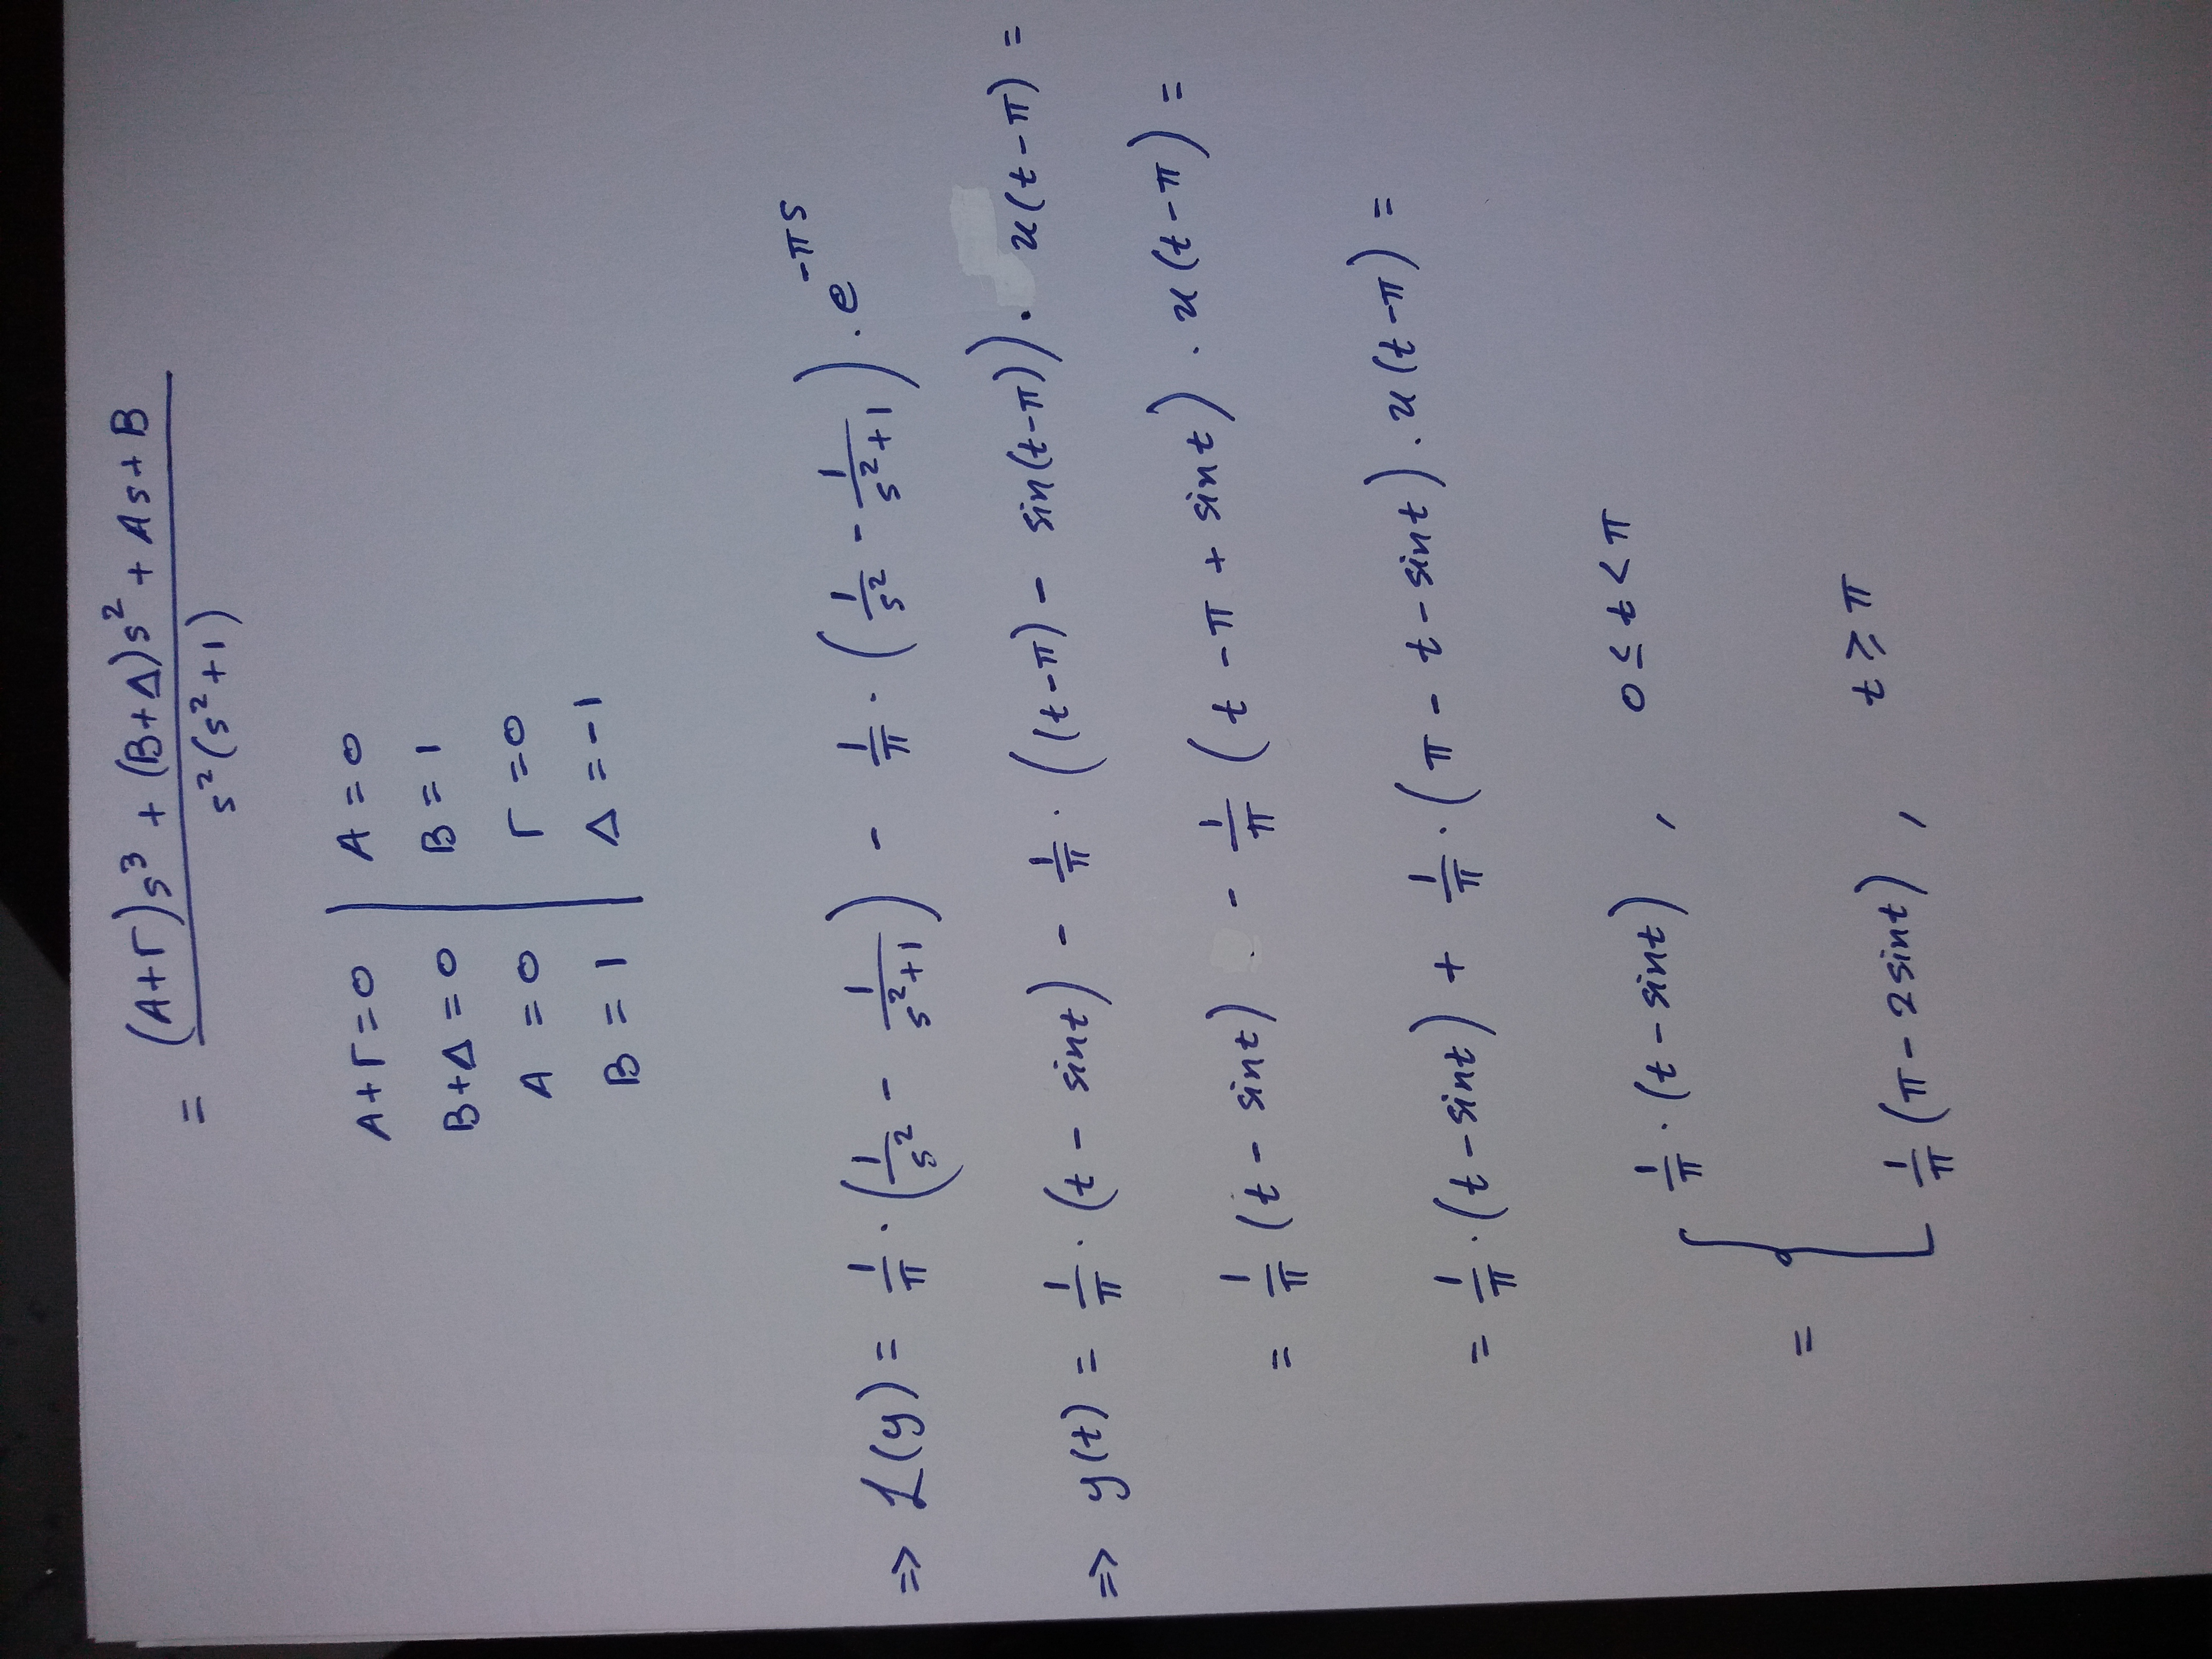 = \frac{(A+Γ)s^3 + (B+Δ)s^2 + As + B}{s^2(s^2+1)}
A+Γ=0 | A=0
B+Δ=0 | B=1
A=0 | Γ=0
B=1 | Δ=-1
=> L(y) = \frac{1}{π} · (\frac{1}{s^2} - \frac{1}{s^2+1}) - \frac{1}{π} · (\frac{1}{s^2} - \frac{1}{s^2+1}) · e^{-πs}
=> y(t) = \frac{1}{π} · (t - sint) - \frac{1}{π} · ((t-π) - sin(t-π)) · u(t-π) =
= \frac{1}{π} (t - sint) - \frac{1}{π} (t - π + sint) · u(t-π) =
= \frac{1}{π} · (t - sint) + \frac{1}{π} · (π - t - sint) · u(t-π) =
= { \frac{1}{π} · (t - sint) , 0 ≤ t < π
\frac{1}{π} (π - 2sint) , t ≥ π